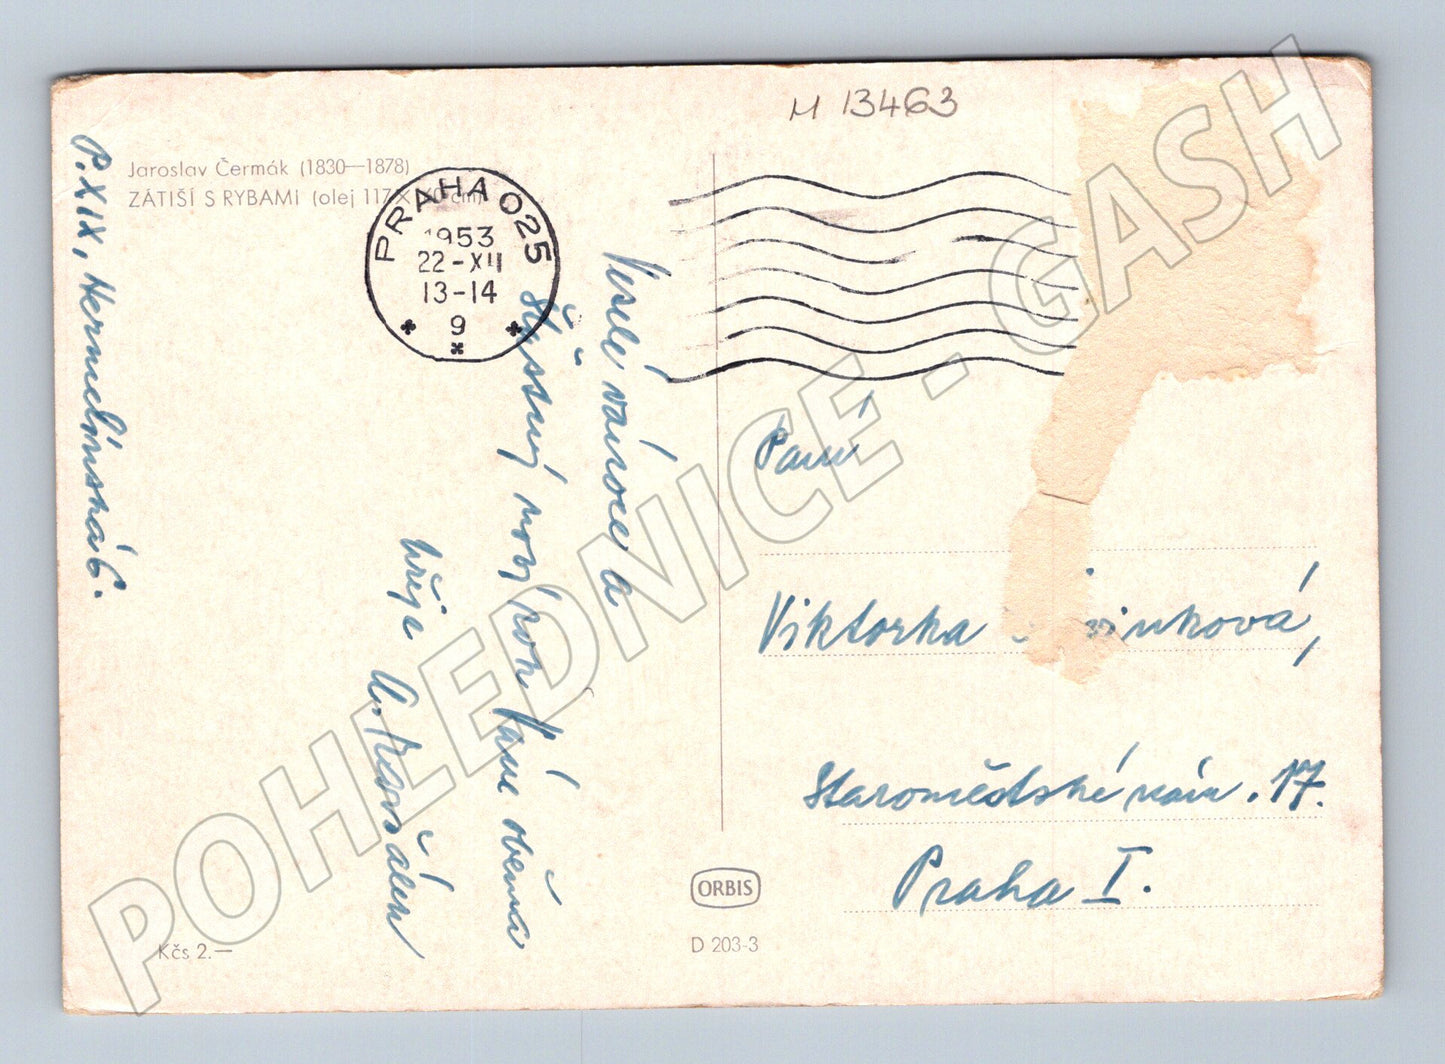 M 13463
Jaroslav Čermák (1830—1878)
ZÁTIŠÍ S RYBAMI (olej 117 X cm)
PRAHA 025
1953
22-XII
13-14
9
P. XIX, Hermelínská 6.
Veselé vánoce a
šťastný nový rok Vám oběma
přeje A.
Paní
Viktorka inková,
Staroměstské nám. 17.
Praha I.
ORBIS
Kčs 2.—
D 203-3
POHLEDNICE - GASH